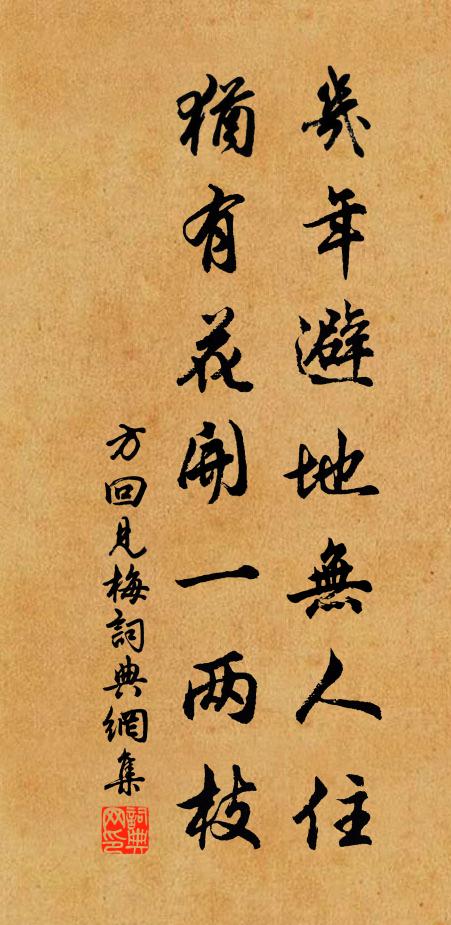 幾年避地無人住
猶有花開一两枝
方回見梅詞典網集
詞典网印